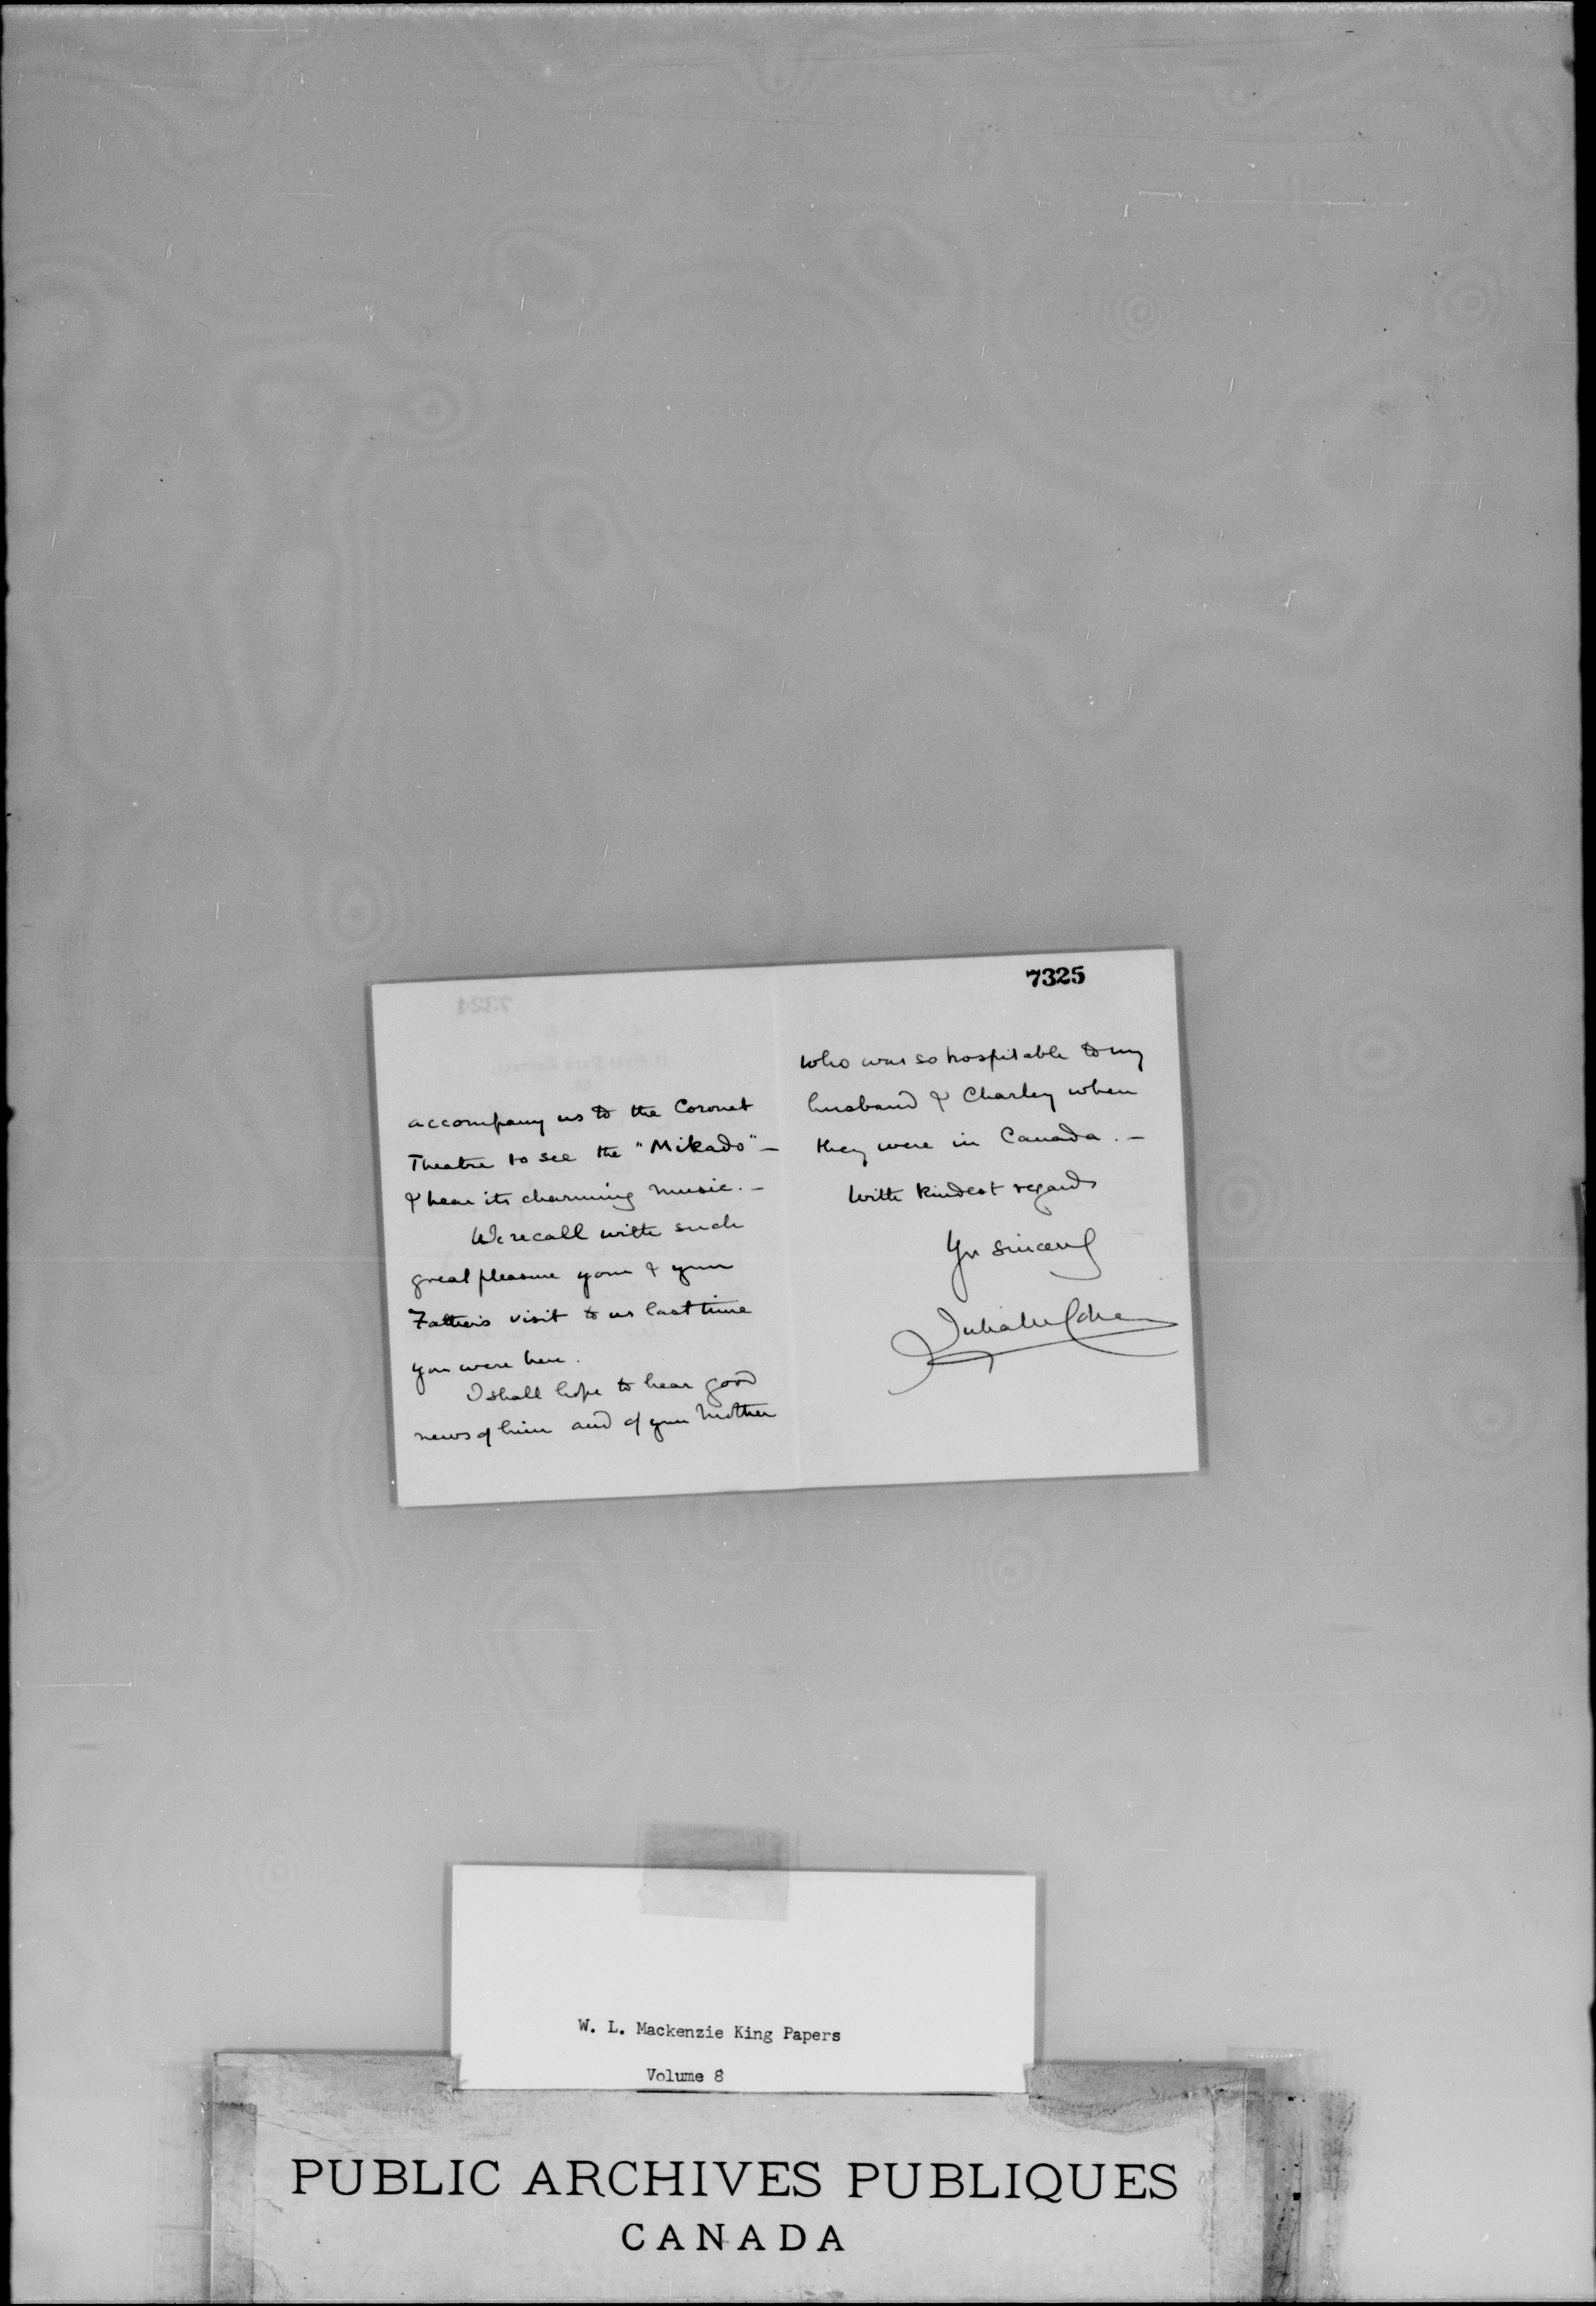 7325
accompany us to the Coronet
Theatre to see the "Mikado" –
& hear its charming music. –
We recall with such
great pleasure your & your
Father's visit to us last time
you were here.
I shall hope to hear good
news of him and of your Mother
who was so hospitable to my
husband & Charley when
they were in Canada. –
With kindest regards
Yrs sincerely
W. L. Mackenzie King Papers
Volume 8
PUBLIC ARCHIVES PUBLIQUES
CANADA